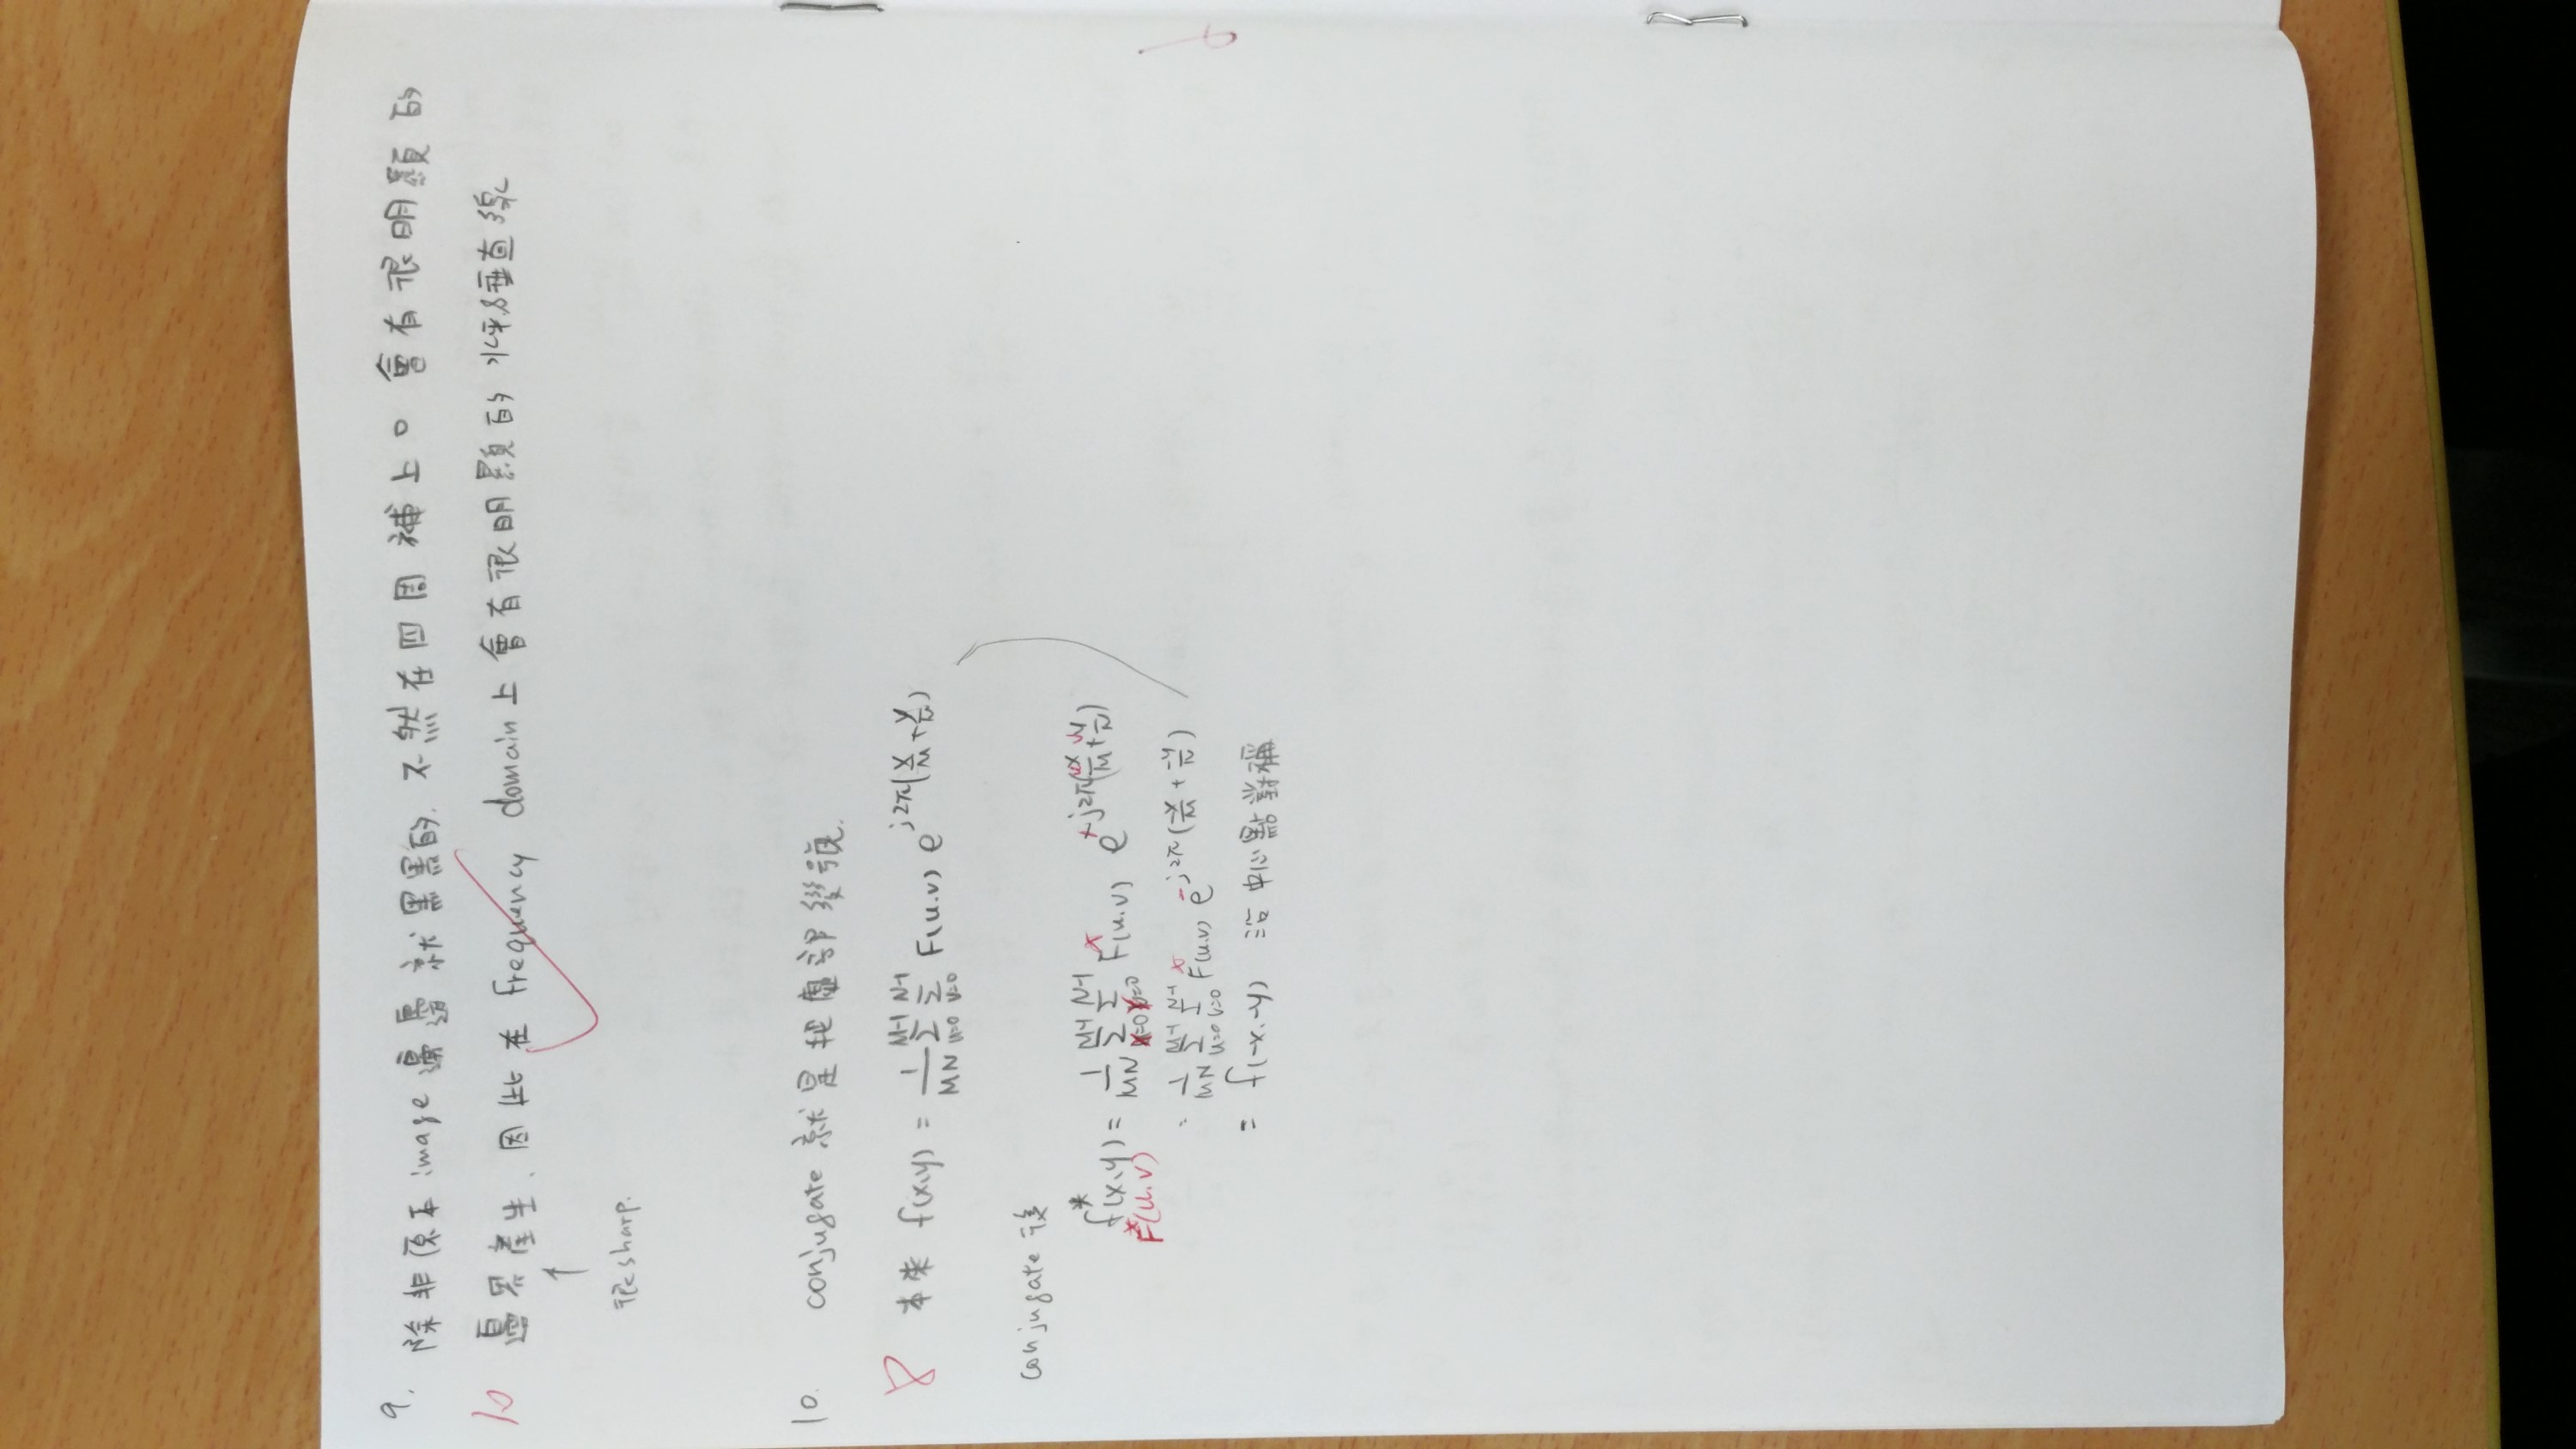 9. 除非原本image邊邊就黑黑的. 不然在四周補上0會有很明顯的
10 邊界產生. 因此在 frequency domain上會有很明顯的水平&垂直線
↑
很sharp.
10. conjugate就是把虛部變號.
8 本來 f(x,y) = 1/MN Σ_{u=0}^{M-1} Σ_{v=0}^{N-1} F(u,v) e^{j2π(x/M + y/N)}
conjugate後
f*(x,y) = 1/MN Σ_{u=0}^{M-1} Σ_{v=0}^{N-1} F*(u,v) e^{-j2π(ux/M + vy/N)}
F*(u,v)
= 1/MN Σ_{u=0}^{M-1} Σ_{v=0}^{N-1} F*(u,v) e^{-j2π(-x/M + -y/N)}
= f(-x,-y) 沿中心點對稱